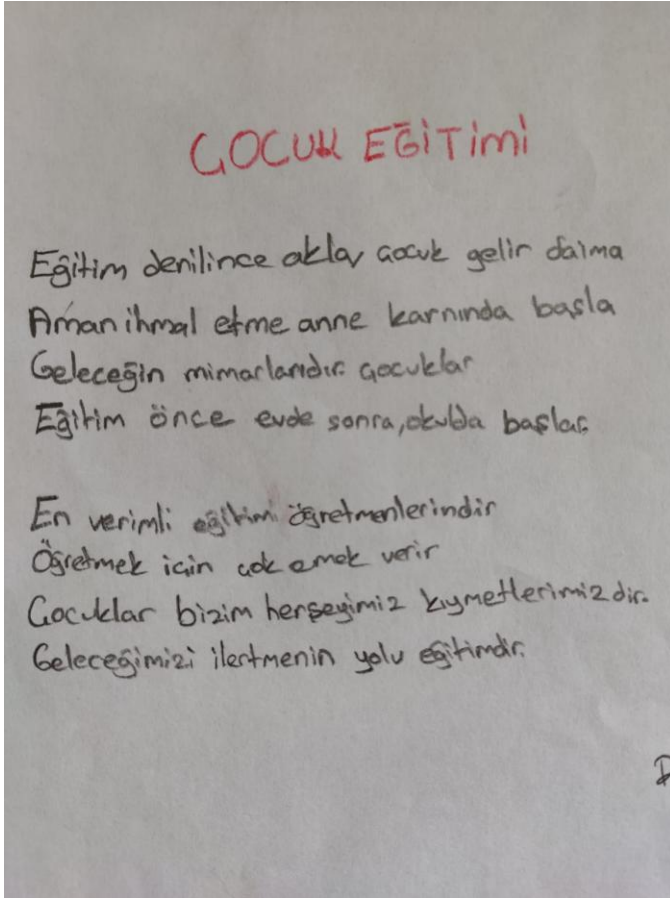 ÇOCUK EĞİTİMİ
Eğitim denilince akla çocuk gelir daima
Aman ihmal etme anne karnında başla
Geleceğin mimarlarıdır çocuklar
Eğitim önce evde sonra, okulda başlar.
En verimli eğitimi öğretmenlerindir
Öğretmek için çok emek verir
Çocuklar bizim herşeyimiz kıymetlerimizdir.
Geleceğimizi ilertmenin yolu eğitimdir.